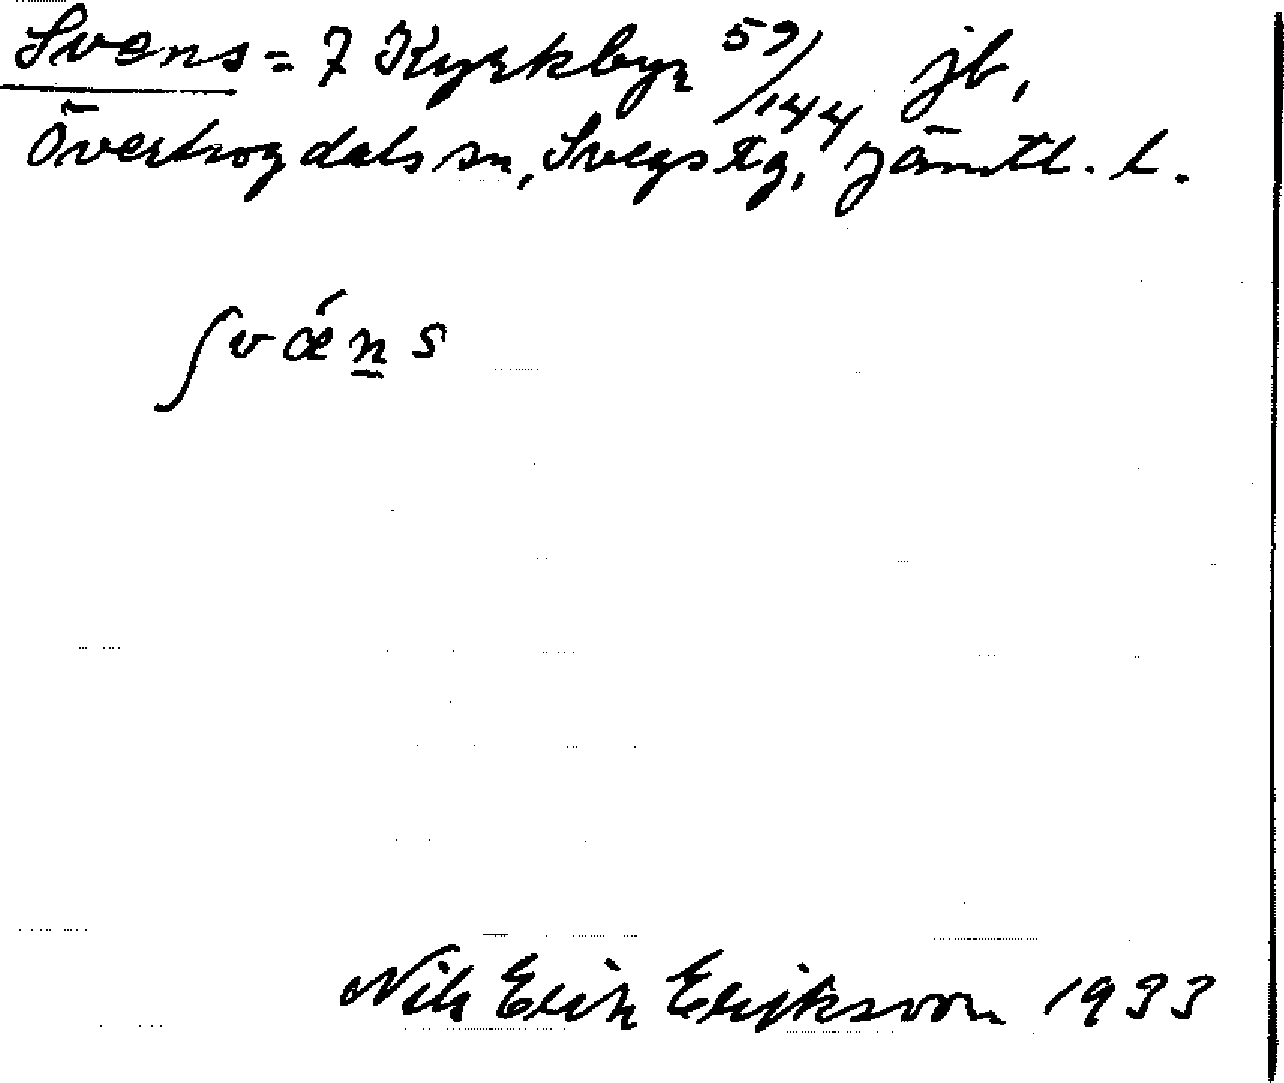 Svens = 7 Kyrkbyn 59/144 jb,
Överhogdals sn, Svegs tg, Jämtl. l.
ʃvǽn̲s
Nils Erik Eriksson 1933